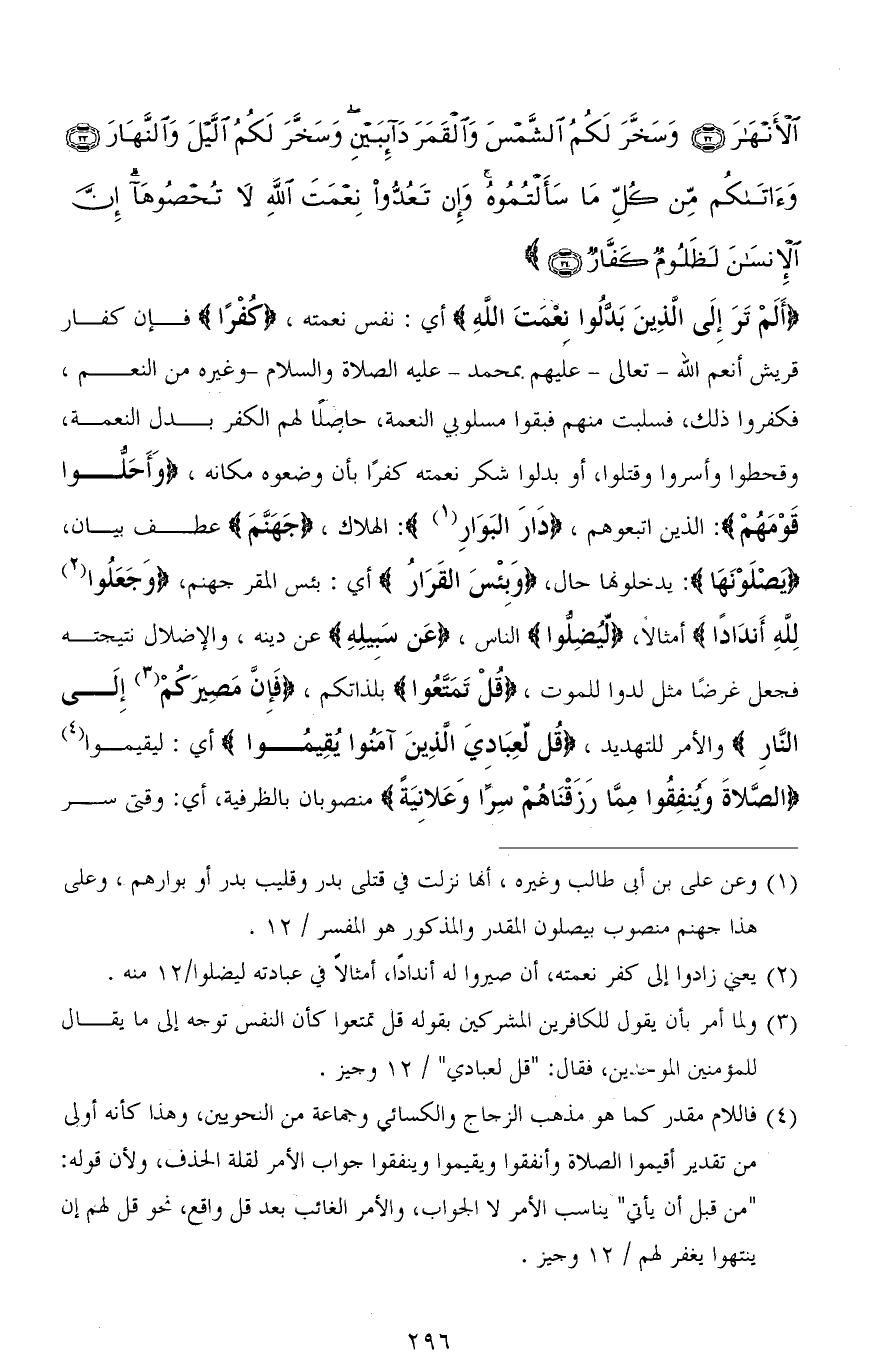 ٱلْأَنْهَـٰرَ ﴿٣٢﴾ وَسَخَّرَ لَكُمُ ٱلشَّمْسَ وَٱلْقَمَرَ دَآئِبَيْنِ ۖ وَسَخَّرَ لَكُمُ ٱلَّيْلَ وَٱلنَّهَارَ ﴿٣٣﴾
وَءَاتَىٰكُم مِّن كُلِّ مَا سَأَلْتُمُوهُ ۚ وَإِن تَعُدُّوا۟ نِعْمَتَ ٱللَّهِ لَا تُحْصُوهَآ ۗ إِنَّ
ٱلْإِنسَـٰنَ لَظَلُومٌ كَفَّارٌ ﴿٣٤﴾ ﴾
﴿أَلَمْ تَرَ إِلَى الَّذِينَ بَدَّلُوا نِعْمَتَ اللَّهِ﴾ أي : نفس نعمته ، ﴿كُفْرًا﴾ فإن كفار
قريش أنعم الله - تعالى - عليهم بمحمد - عليه الصلاة والسلام -وغيره من النعم ،
فكفروا ذلك، فسلبت منهم فبقوا مسلوبي النعمة، حاصلًا لهم الكفر بدل النعمة،
وقحطوا وأسروا وقتلوا، أو بدلوا شكر نعمته كفرًا بأن وضعوه مكانه ، ﴿وَأَحَلُّوا
قَوْمَهُمْ﴾: الذين اتبعوهم ، ﴿دَارَ البَوَارِ(١) ﴾: الهلاك ، ﴿جَهَنَّمَ﴾ عطف بيان،
﴿يَصْلَوْنَهَا﴾: يدخلونها حال، ﴿وَبِئْسَ القَرَارُ ﴾ أي : بئس المقر جهنم، ﴿وَجَعَلُوا(٢)
لِلَّهِ أَندَادًا﴾ أمثالاً، ﴿لِّيُضِلُّوا﴾ الناس ، ﴿عَن سَبِيلِهِ﴾ عن دينه ، والإضلال نتيجته
فجعل غرضًا مثل لدوا للموت ، ﴿قُلْ تَمَتَّعُوا﴾ بلذاتكم ، ﴿فَإِنَّ مَصِيرَكُمْ(٣) إِلَى
النَّارِ ﴾ والأمر للتهديد ، ﴿قُل لِّعِبَادِيَ الَّذِينَ آمَنُوا يُقِيمُوا ﴾ أي : ليقيموا(٤)
﴿الصَّلاةَ وَيُنفِقُوا مِمَّا رَزَقْنَاهُمْ سِرًّا وَعَلانِيَةً﴾ منصوبان بالظرفية، أي: وقتي سر
(١) وعن على بن أبى طالب وغيره ، أنها نزلت في قتلى بدر وقليب بدر أو بوارهم ، وعلى
هذا جهنم منصوب بيصلون المقدر والمذكور هو المفسر / ١٢ .
(٢) يعني زادوا إلى كفر نعمته، أن صيروا له أندادًا، أمثالاً في عبادته ليضلوا/١٢ منه .
(٣) ولما أمر بأن يقول للكافرين المشركين بقوله قل تمتعوا كأن النفس توجه إلى ما يقال
للمؤمنين الموحدين، فقال: "قل لعبادي" / ١٢ وجيز .
(٤) فاللام مقدر كما هو مذهب الزجاج والكسائي وجماعة من النحويين، وهذا كأنه أولى
من تقدير أقيموا الصلاة وأنفقوا ويقيموا وينفقوا جواب الأمر لقلة الحذف، ولأن قوله:
"من قبل أن يأتي" يناسب الأمر لا الجواب، والأمر الغائب بعد قل واقع، نحو قل لهم إن
ينتهوا يغفر لهم / ١٢ وجيز .
٢٩٦